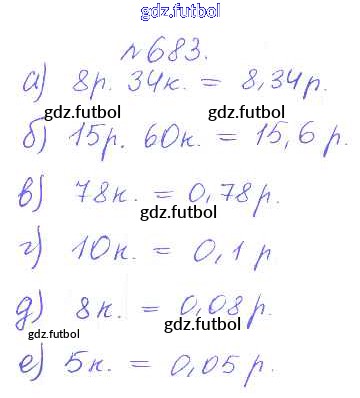 gdz.futbol
№683.
а) 8р. 34к. = 8,34р.
gdz.futbol
gdz.futbol
б) 15р. 60к. = 15,6 р.
в) 78к. = 0,78 р.
gdz.futbol
г) 10к. = 0,1 р
gdz.futbol
д) 8к. = 0,08 р.
gdz.futbol
gdz.futbol
е) 5к. = 0,05 р.
gdz.futbol